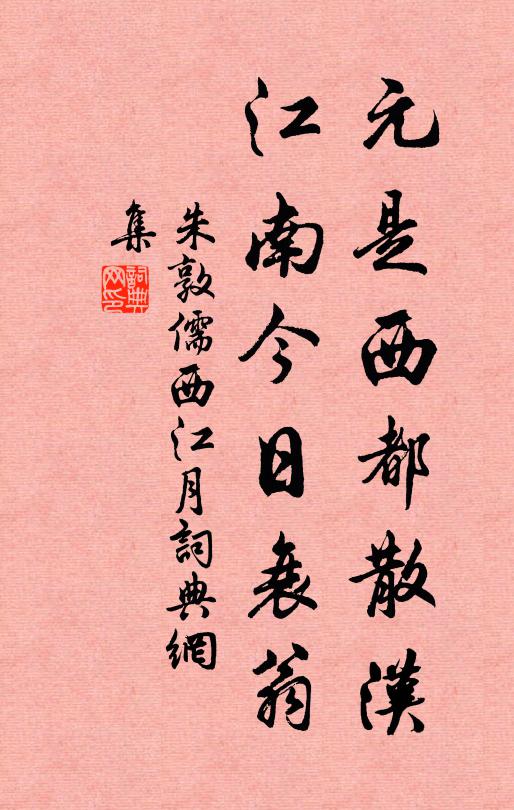 元是西都散漢
江南今日衰翁
朱敦儒西江月詞典網
集
詞典網印